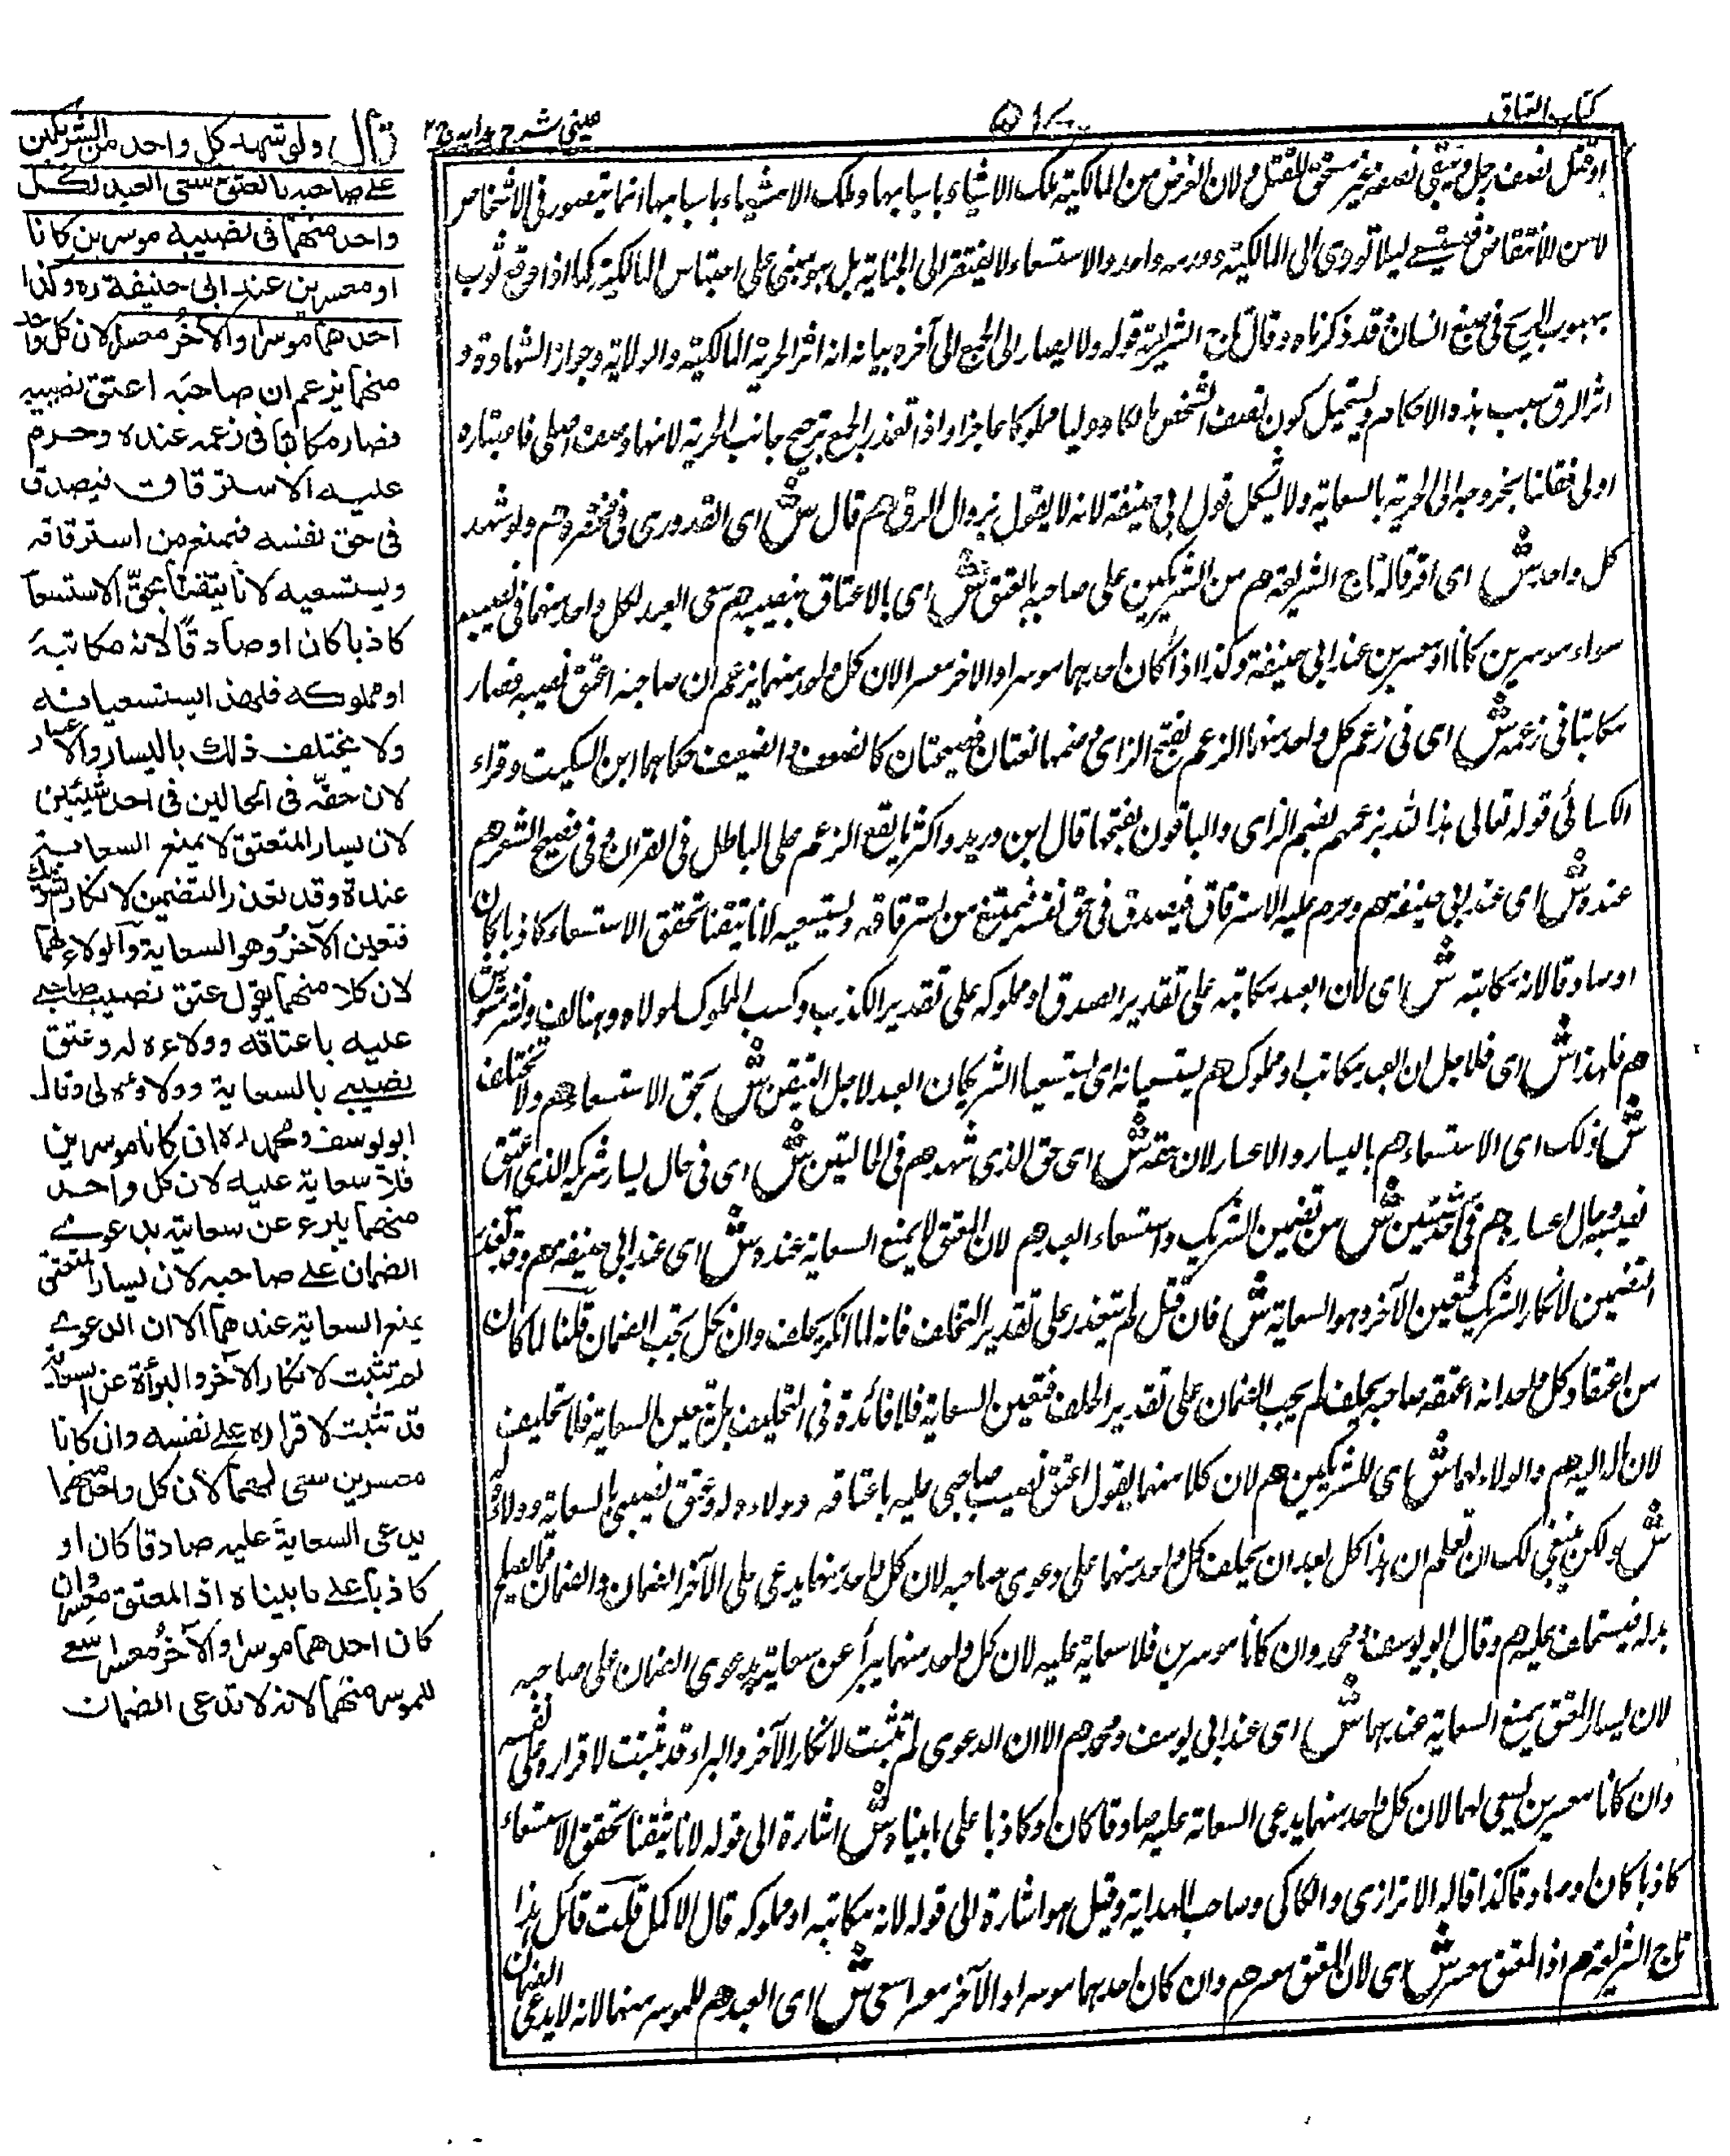 كتاب العتاق
عينى شرح هدايه ج ٢
او قتل نصف رجل ويبقى نصفه غير مستحق للقتل م لان الغرض من المالكية تملك الاشياء باسبابها وملك الاشياء باسبابها انما يتصور فى الاشخاص
لا من الانقاض
بهبوب الريح فى صبغ انسان ش قد ذكرناه وقال تاج الشريعة قوله ولا يصار الى الجمع الى آخره بيانه انه اثر الحرية المالكية والولاية وجواز الشهادة و
اثر الرق سلب هذه الاحكام ويستحيل كون نصف الشخص مالكا وليا مملوكا عاجزا واذا تعذر الجمع ترجح جانب الحرية لانها وصف اصلى فاعتباره
اولى فقلنا بخروجه الى الحرية بالسعاية ولا يشكل قول ابى حنيفة لانه لا يقول بزوال الرق هم قال ش اى القدورى فى مختصره هم ولو شهد
كل واحد ش اى اقر قاله تاج الشريعة هم من الشريكين على صاحبه بالعتق ش اى بالاعتاق نصيبه هم سعى العبد لكل واحد منهما فى نصيبه
سواء موسرين كانا او معسرين عند ابى حنيفة وكذا اذا كان احدهما موسرا والاخر معسرا لان كل واحد منهما يزعم ان صاحبه اعتق نصيبه فصار
مكاتبا فى زعمه ش اى فى زعم كل واحد منهما الزعم بفتح الزاى وضمها لغتان فصيحتان كالضعف والضعف حكاهما ابن السكيت وقراء
الكسائى قوله تعالى هذا لله بزعمهم بضم الزاى والباقون بفتحها قال ابن دريد واكثر ما يقع الزعم على الباطل فى القران وفى فصيح الشعر هم
عنده ش اى عند ابى حنيفة هم وحرم عليه الاسترقاق فيصدق فى حق نفسه فيمتنع من استرقاقه ويستسعيه لانا تيقنا بحق الاستسعاء كاذبا كان
او صادقا لانه مكاتبه ش اى لان العبد مكاتبه على تقدير الصدق او مملوكه على تقدير الكذب وكسب المملوك لمولاه وهنا لف ونشر
هم فلهذا ش اى فلاجل ان العبد مكاتب او مملوك هم يستسعيانه اى يستسعيا الشريكان العبد لاجل التيقن ش بحق الاستسعاء هم ولا يختلف
ش ذلك اى الاستسعاء هم باليسار والاعسار لان حقه ش اى حق الذى شهد هم فى الحالتين ش اى فى حال يسار شريكه الذى اعتق
نصيبه وحال اعساره هم فى احد شيئين ش من تضمين الشريك واستسعاء العبد هم لان المعتق لا يمنع السعاية عنده ش اى عند ابى حنيفة هم وقد تعذر
التضمين لانكار الشريك فتعين الآخر وهو السعاية ش فان قيل لم يتعذر على تقدير التحلف فانه لما انكر يحلف وان نكل يجب الضمان قلنا لما كان
من اعتقاد كل واحد انه اعتقه صاحبه يحلف لم يجب الضمان على تقدير الحلف فتعين السعاية فلا فائدة فى التحليف بل تتعين السعاية فلا تحليف
لان ال اليه هم والولاء لهما ش اى للشريكين هم لان كلا منهما يقول اعتق نصيب صاحبى عليه باعتاقه وولاءه له وعتق نصيبى بالسعاية وولاؤه لى
ش ولكن ينبغى لك ان تعلم ان هذا كل بعد ان يحلف كل واحد منهما على دعوى صاحبه لان كل واحد منهما يدعى على الآخر الضمان والضمان مما يصلح
بذله فيستحلف عليه هم وقال ابو يوسف ومحمد وان كانا موسرين فلا سعاية عليه لان كل واحد منهما يبرأ عن سعايته بدعوى الضمان على صاحبه
لان يسار المعتق يمنع السعاية عندهما ش اى عند ابى يوسف ومحمد هم الا ان الدعوى لم تثبت لانكار الآخر والبراءة قد ثبتت لاقراره على نفسه
وان كانا معسرين يسعى لهما لان كل واحد منهما يدعى السعاية عليه صادقا كان او كاذبا على ما بيناه ش اشارة الى قوله لانا تيقنا بحقق الاستسعاء
كاذبا كان او صادقا كذا قاله الاترازى والكاكى وصاحب الهداية وقيل هو اشارة الى قوله لانه مكاتبه او مملوكه قال الاكمل قلت قائل هذا
تاج الشريعة هم اذ المعتق معسر ش اى لان المعتق معسر هم وان كان احدهما موسرا والآخر معسرا سعى ش اى العبد هم للموسر منهما لانه لا يدعى الضمان
قال ولو شهد كل واحد من الشريكين
على صاحبه بالعتق سعى العبد لكل
واحد منهما فى نصيبه موسرين كانا
او معسرين عند ابى حنيفة ره وكذا
احدهما موسرا والآخر معسرا لان كل واحد
منهما يزعم ان صاحبه اعتق نصيبه
فصار مكاتبا فى زعمه عنده وحرم
عليه الاسترقاق فيصدق
فى حق نفسه فيمنع من استرقاقه
ويستسعيه لانا تيقنا بحق الاستسعاء
كاذبا كان او صادقا لانه مكاتبه
او مملوكه فلهذا يستسعيانه
ولا يختلف ذلك باليسار والاعسار
لان حقه فى الحالين فى احد شيئين
لان يسار المعتق لا يمنع السعاية
عنده وقد تعذر التضمين لانكار الشريك
فتعين الآخر وهو السعاية والولاء لهما
لان كلا منهما يقول عتق نصيب صاحبى
عليه باعتاقه وولاءه له وعتق
نصيبى بالسعاية وولاؤه لى وقال
ابو يوسف ومحمد ره ان كانا موسرين
فلا سعاية عليه لان كل واحد
منهما يبرء عن سعايته بدعوى
الضمان على صاحبه لان يسار المعتق
يمنع السعاية عندهما الا ان الدعوى
لم تثبت لانكار الآخر والبراءة عن السعاية
قد تثبت لاقراره على نفسه وان كانا
معسرين سعى لهما لان كل واحد منهما
يدعى السعاية عليه صادقا كان او
كاذبا على ما بيناه اذ المعتق معسر وان
كان احدهما موسرا والآخر معسرا سعى
للموسر منهما لانه لا تدعى الضمان